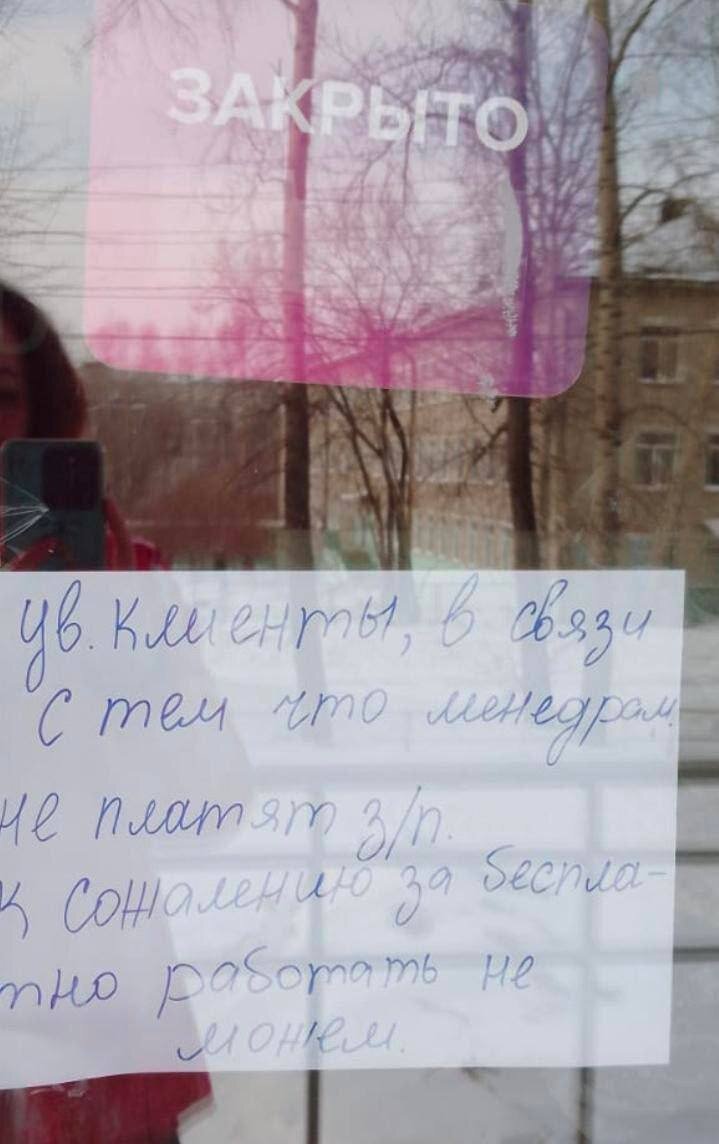 ЗАКРЫТО
Ув. клиенты, в связи
с тем что менедрам
не платят з/п.
К сожалению за беспла-
тно работать не
можем.